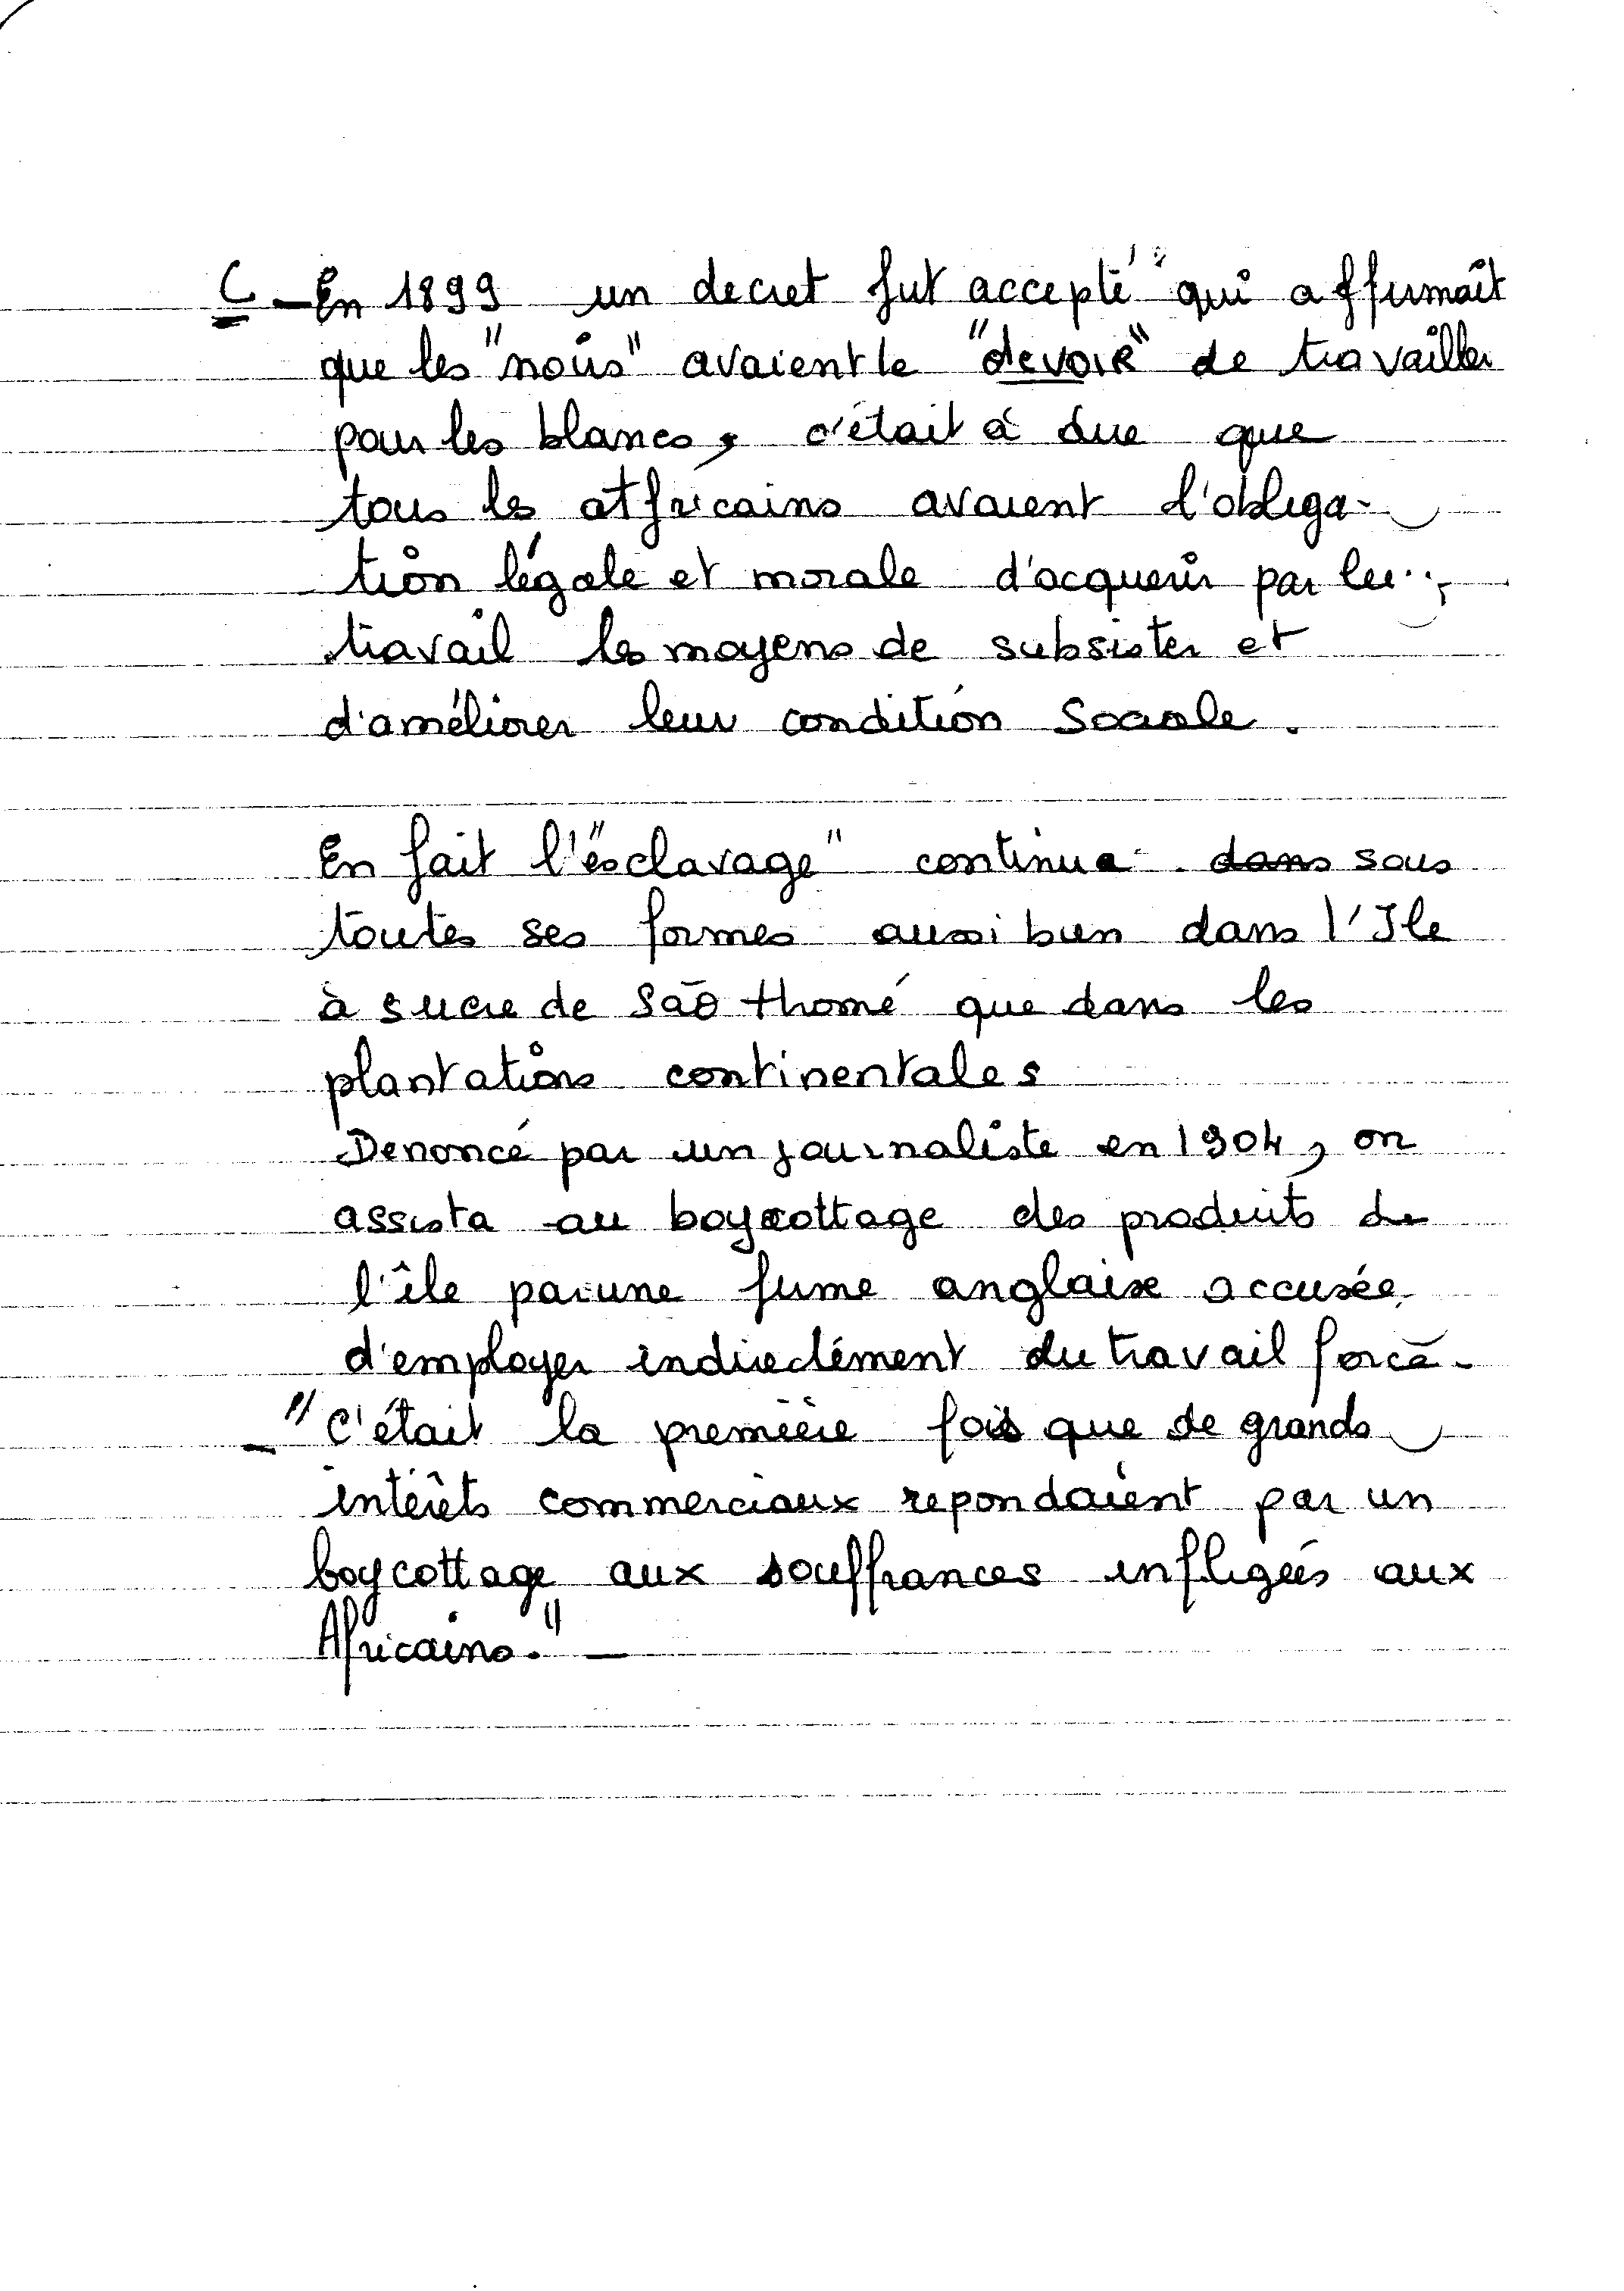 C - En 1899 un decret fut accepté qui affirmait
que les "noirs" avaient le "devoir" de travailler
pour les blancs, c'était à dire que
tous les atfricains avaient l'obliga-
tion légale et morale d'acquerir par leur
travail les moyens de subsister et
d'améliorer leur condition Sociale.
En fait l'"esclavage" continue dans sous
toutes ses formes aussi bien dans l'Ile
à sucre de Saõ thomé que dans les
plantations continentales
Denoncé par un journaliste en 1904, on
assista au boycottage des produits de
l'île par une firme anglaise accusée
d'employer indirectément du travail forcé -
- "C'était la première fois que de grands
intérêts commerciaux repondaient par un
boycottage aux souffrances infligées aux
Africains." -